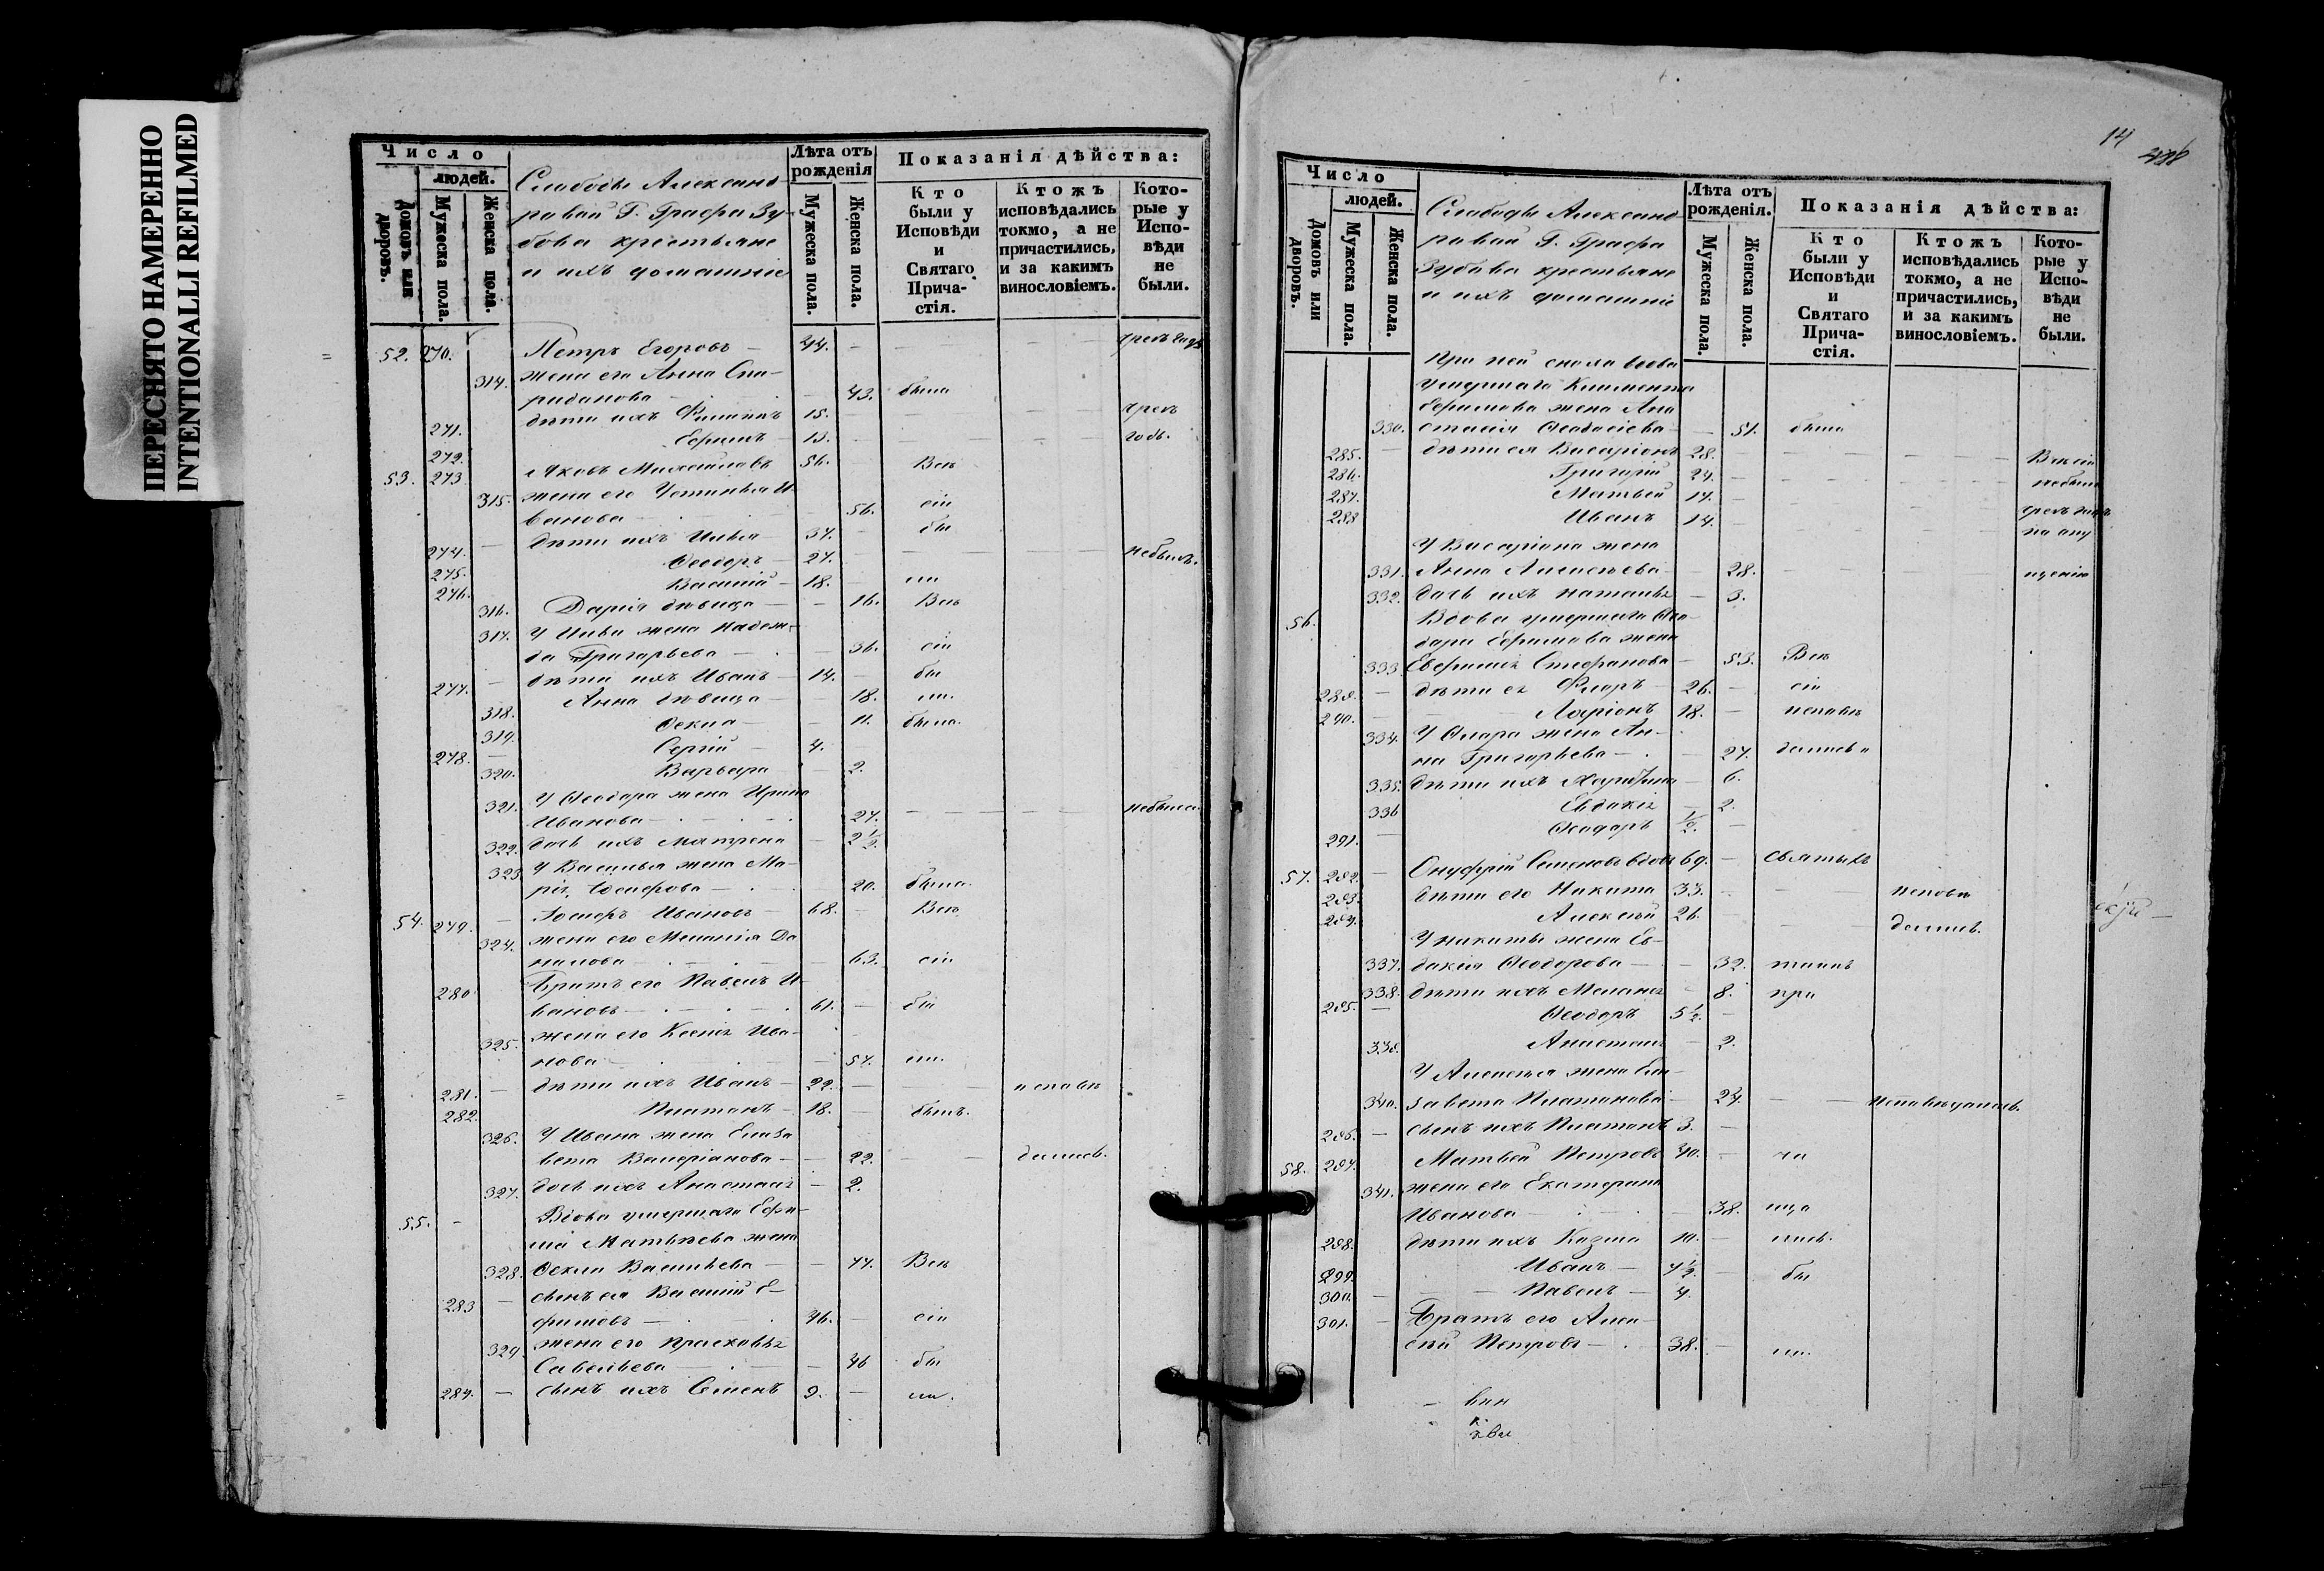 ПЕРЕСНЯТО НАМЕРЕННО
INTENTIONALLI REFILMED
Число
людей.
Домовъ или дворовъ.
Мужеска пола.
Женска пола.
Слободы Александ-
ровой Г. Графа Зу-
бова крестьяне
и ихъ домашніе
Лѣта отъ рожденія
Мужеска пола.
Женска пола.
Показанія дѣйства:
Кто были у Исповѣди и Святаго Прича- стія.
Ктожъ исповѣдались токмо, а не причастились, и за какимъ винословіемъ.
Кото- рые у Испо- вѣди не были.
52. 270. Петръ Егоровъ — 44.
314. жена его Анна Спи-
ридонова — 43. была
271. дѣти ихъ Филиппъ 15. чрезъ
272. Ефимъ — 13. годъ.
53. 273. Яковъ Михайловъ 56. Всѣ
315. жена его Устинья И-
ванова — 56. сіи
274. дѣти ихъ Илья — 37. бы
275. Ѳеодоръ — 27. небылъ.
276. Василій — 18. ли
316. Дарія дѣвица — 16. Всѣ
317. У Ильи жена Надеж-
да Григорьева — 36. сіи
277. дѣти ихъ Иванъ — 14. бы
318. Анна дѣвица — 18. ли.
319. Ѳекла — 11. была.
278. Сергій — 4.
320. Варвара — 2.
321. У Ѳеодора жена Ирина
Иванова — 27. небыла.
322. дочь ихъ Матрена — 2 1/2.
323 У Василья жена Ма-
рія Іосифова — 20. была.
54. 279. Іосифъ Ивановъ — 68. Всѣ
324. жена его Меланія Да
нилова — 63. сіи
280 Братъ его Павелъ И-
вановъ — 61. бы
325. жена его Ксенія Ива-
нова — 57. ли.
281. дѣти ихъ Иванъ — 22. исповѣ
282. Платонъ — 18. былъ.
326. У Ивана жена Елиза
вета Валеріанова — 22. дались.
327. дочь ихъ Анастасія — 2.
55. Вдова умершаго Ефи-
ма Матвѣева жена
328. Ѳекла Васильева — 77. Всѣ
283 сынъ ея Василій Е-
фимовъ — 46. сіи
329. жена его Прасковья
Савельева — 46 бы
284. сынъ ихъ Семенъ 9. ли.
14
Число
людей.
Домовъ или дворовъ.
Мужеска пола.
Женска пола.
Слободы Александ-
ровой Г. Графа
Зубова крестьяне
и ихъ домашніе
Лѣта отъ рожденія.
Мужеска пола.
Женска пола.
Показанія дѣйства:
Кто были у Исповѣди и Святаго Прича- стія.
Ктожъ исповѣдались токмо, а не причастились, и за какимъ винословіемъ.
Кото- рые у Испо- вѣди не были.
При ней сноха вдова
умершаго Климента
Ефимова жена Ана
330. стасія Ѳеодосіева — 51. была
285. дѣти ея Висаріонъ 28.
286. Григорій 24.
287. Матвей 17.
288 Иванъ 14.
У Висаріона жена
331. Анна Алексѣева — 28.
332. дочь ихъ Наталья — 3.
56. Вдова умершаго Ѳео-
дора Ефимова жена
333. Евфимія Стефанова — 53. Всѣ
289. дѣти ея Флоръ — 26. сіи
290. Ларіонъ 18. исповѣ
334. У Флора жена Ан-
на Григорьева — 27. дались и
335. дѣти ихъ — 6.
336 Евдокія — 2.
291. Ѳеодоръ 1/2.
57. 292. Онуфрій Семеновъ вдовъ 69. святыхъ
293. дѣти его Никита 33. исповѣ
294. Алексѣй 26. дались.
У Никиты жена Ев-
337. докія Ѳеодорова — 32. таинъ
338. дѣти ихъ Меланія 8. при
295. Ѳеодоръ 5 1/2.
339. Анастасія — 2.
У Алексѣя жена Ели-
340. завета Платонова — 24. исповѣдалась.
296. сынъ ихъ Платонъ 3.
58. 297. Матвей Петровъ 40. ча
341. жена его Екатерина
Иванова — 38. ща
298. дѣти ихъ Козма 10. лись.
299. Иванъ — 7 1/2. бы
300. Павелъ — 4.
301. Братъ его Алек-
сѣй Петровъ — 38. ли.